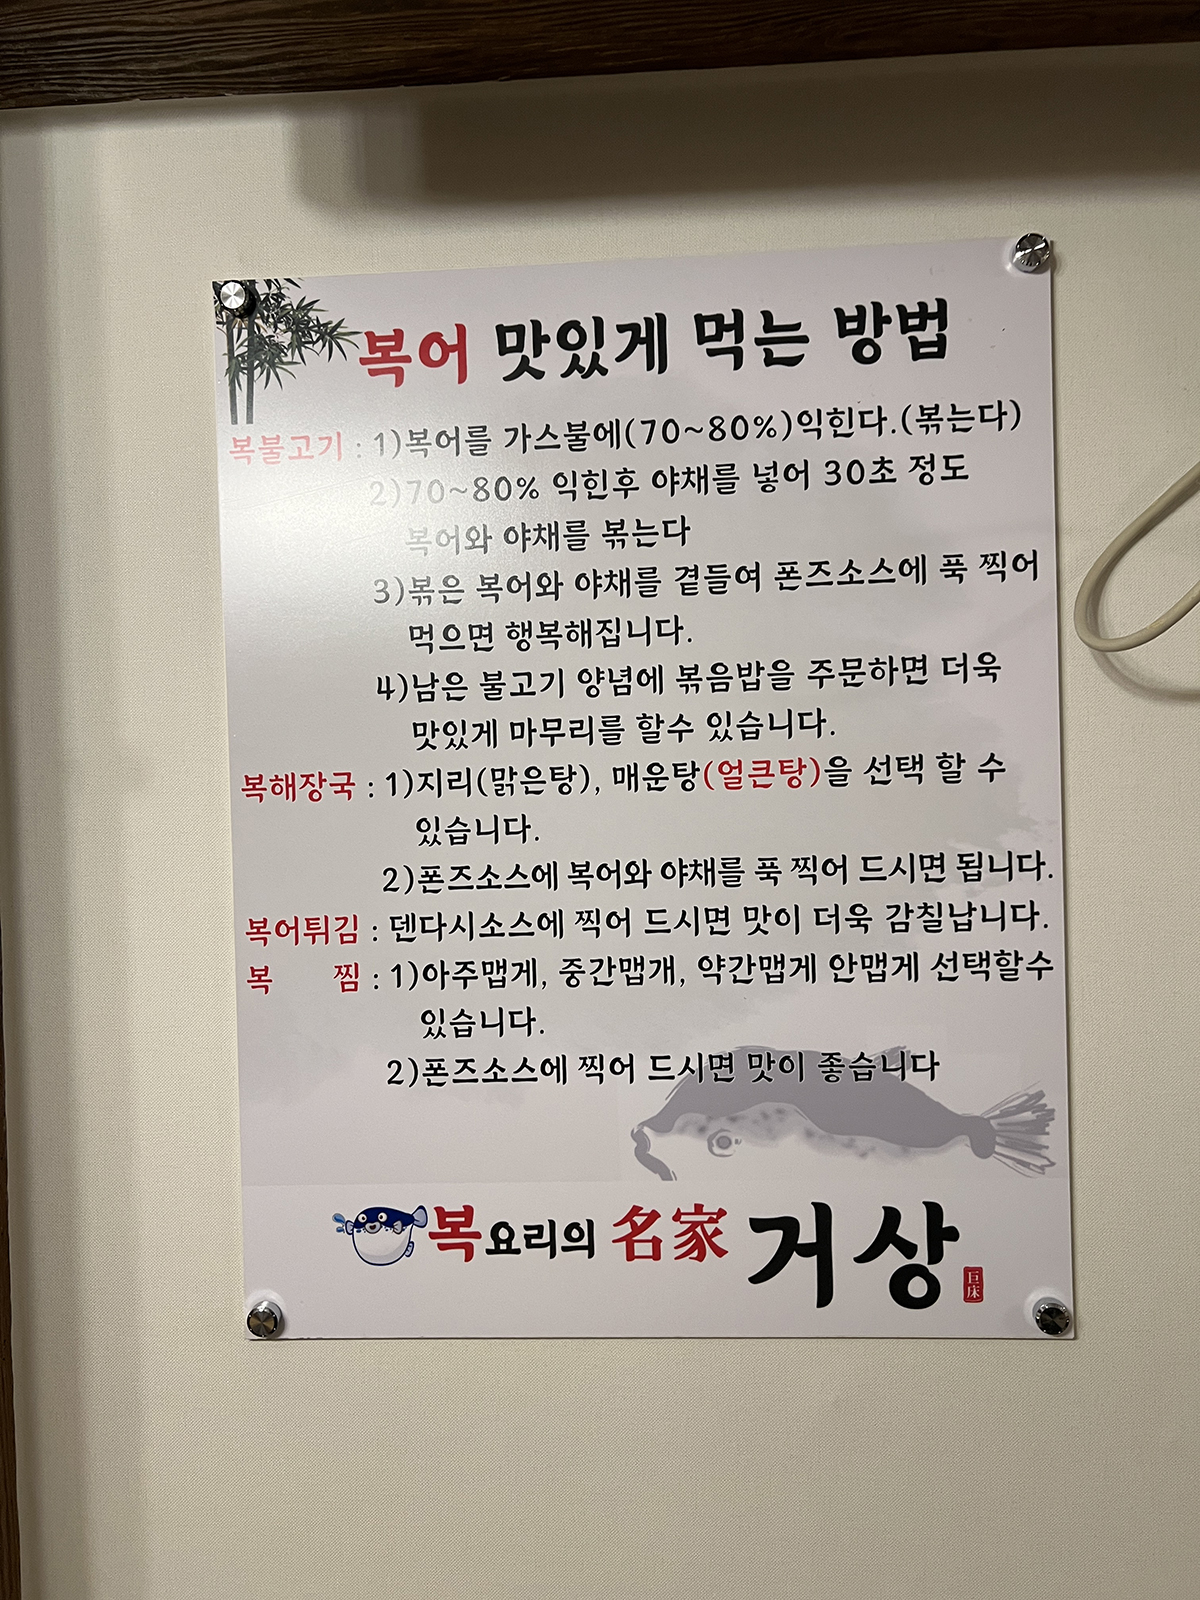 복어 맛있게 먹는 방법
복불고기 : 1)복어를 가스불에(70~80%)익힌다.(볶는다)
2)70~80% 익힌후 야채를 넣어 30초 정도
복어와 야채를 볶는다
3)볶은 복어와 야채를 곁들여 폰즈소스에 푹 찍어
먹으면 행복해집니다.
4)남은 불고기 양념에 볶음밥을 주문하면 더욱
맛있게 마무리를 할수 있습니다.
복해장국 : 1)지리(맑은탕), 매운탕(얼큰탕)을 선택 할 수
있습니다.
2)폰즈소스에 복어와 야채를 푹 찍어 드시면 됩니다.
복어튀김 : 덴다시소스에 찍어 드시면 맛이 더욱 감칠납니다.
복 찜 : 1)아주맵게, 중간맵개, 약간맵게 안맵게 선택할수
있습니다.
2)폰즈소스에 찍어 드시면 맛이 좋습니다
복요리의 名家 거상
巨床